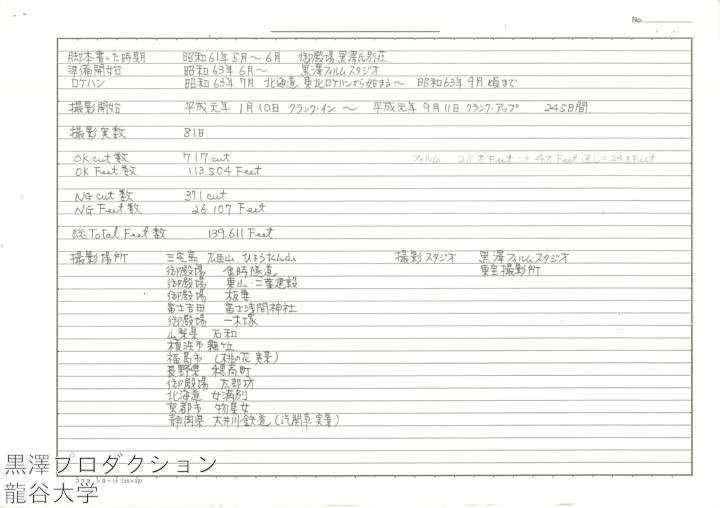 No.
脚本書いた時期 昭和61年5月~6月 御殿場 黒澤氏別荘
準備開始 昭和63年6月~ 黒澤フィルムスタジオ
ロケハン 昭和63年7月 北海道 東北ロケハンから始まる~ 昭和63年9月頃まで
撮影開始 平成元年1月10日 クランク・イン ~ 平成元年9月11日 クランク・アップ 245日間
撮影実数 81日
OK cut 数 717cut フィルム 28万Feet → 4万Feet 返し=24万Feet
OK Feet 数 113.504 Feet
NG cut 数 371 cut
NG Feet 数 26.107 Feet
総Total Feet 数 139.611 Feet
撮影場所 三宅島 雄山 ひょうたん山 撮影スタジオ 黒澤フィルムスタジオ
御殿場 金時隧道 東宝撮影所
御殿場 東山・二葉建設
御殿場 板妻
富士吉田 富士浅間神社
御殿場 一本塚
山梨県 石和
横浜市霧ヶ丘
福島市 (桃の花 実景)
長野県 穂高町
御殿場 太郎坊
北海道 女満別
京都市
静岡県 大井川鉄道(汽関車 実景)
コクヨ ショ-15 (25×32)
黒澤プロダクション
龍谷大学